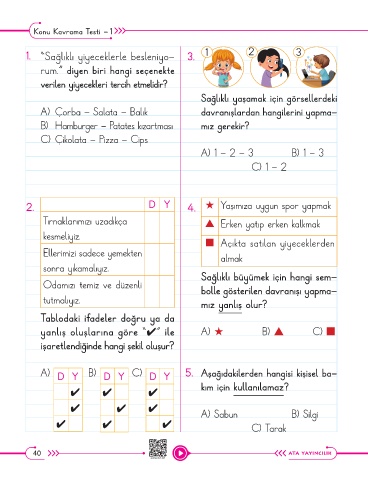 Konu Kavrama Testi - 1
1. "Sağlıklı yiyeceklerle besleniyo-
rum." diyen biri hangi seçenekte
verilen yiyecekleri tercih etmelidir?
A) Çorba - Salata - Balık
B) Hamburger - Patates kızartması
C) Çikolata - Pizza - Cips
2.
D Y
Tırnaklarımızı uzadıkça
kesmeliyiz.
Ellerimizi sadece yemekten
sonra yıkamalıyız.
Odamızı temiz ve düzenli
tutmalıyız.
Tablodaki ifadeler doğru ya da
yanlış oluşlarına göre "✔" ile
işaretlendiğinde hangi şekil oluşur?
A) D Y B) D Y C) D Y
✔ ✔ ✔
✔ ✔ ✔
✔ ✔ ✔
3.
1 2 3
Sağlıklı yaşamak için görsellerdeki
davranışlardan hangilerini yapma-
mız gerekir?
A) 1 - 2 - 3 B) 1 - 3
C) 1 - 2
4. ★ Yaşımıza uygun spor yapmak
▲ Erken yatıp erken kalkmak
■ Açıkta satılan yiyeceklerden
almak
Sağlıklı büyümek için hangi sem-
bolle gösterilen davranışı yapma-
mız yanlış olur?
A) ★ B) ▲ C) ■
5. Aşağıdakilerden hangisi kişisel ba-
kım için kullanılamaz?
A) Sabun B) Silgi
C) Tarak
40
ATA YAYINCILIK